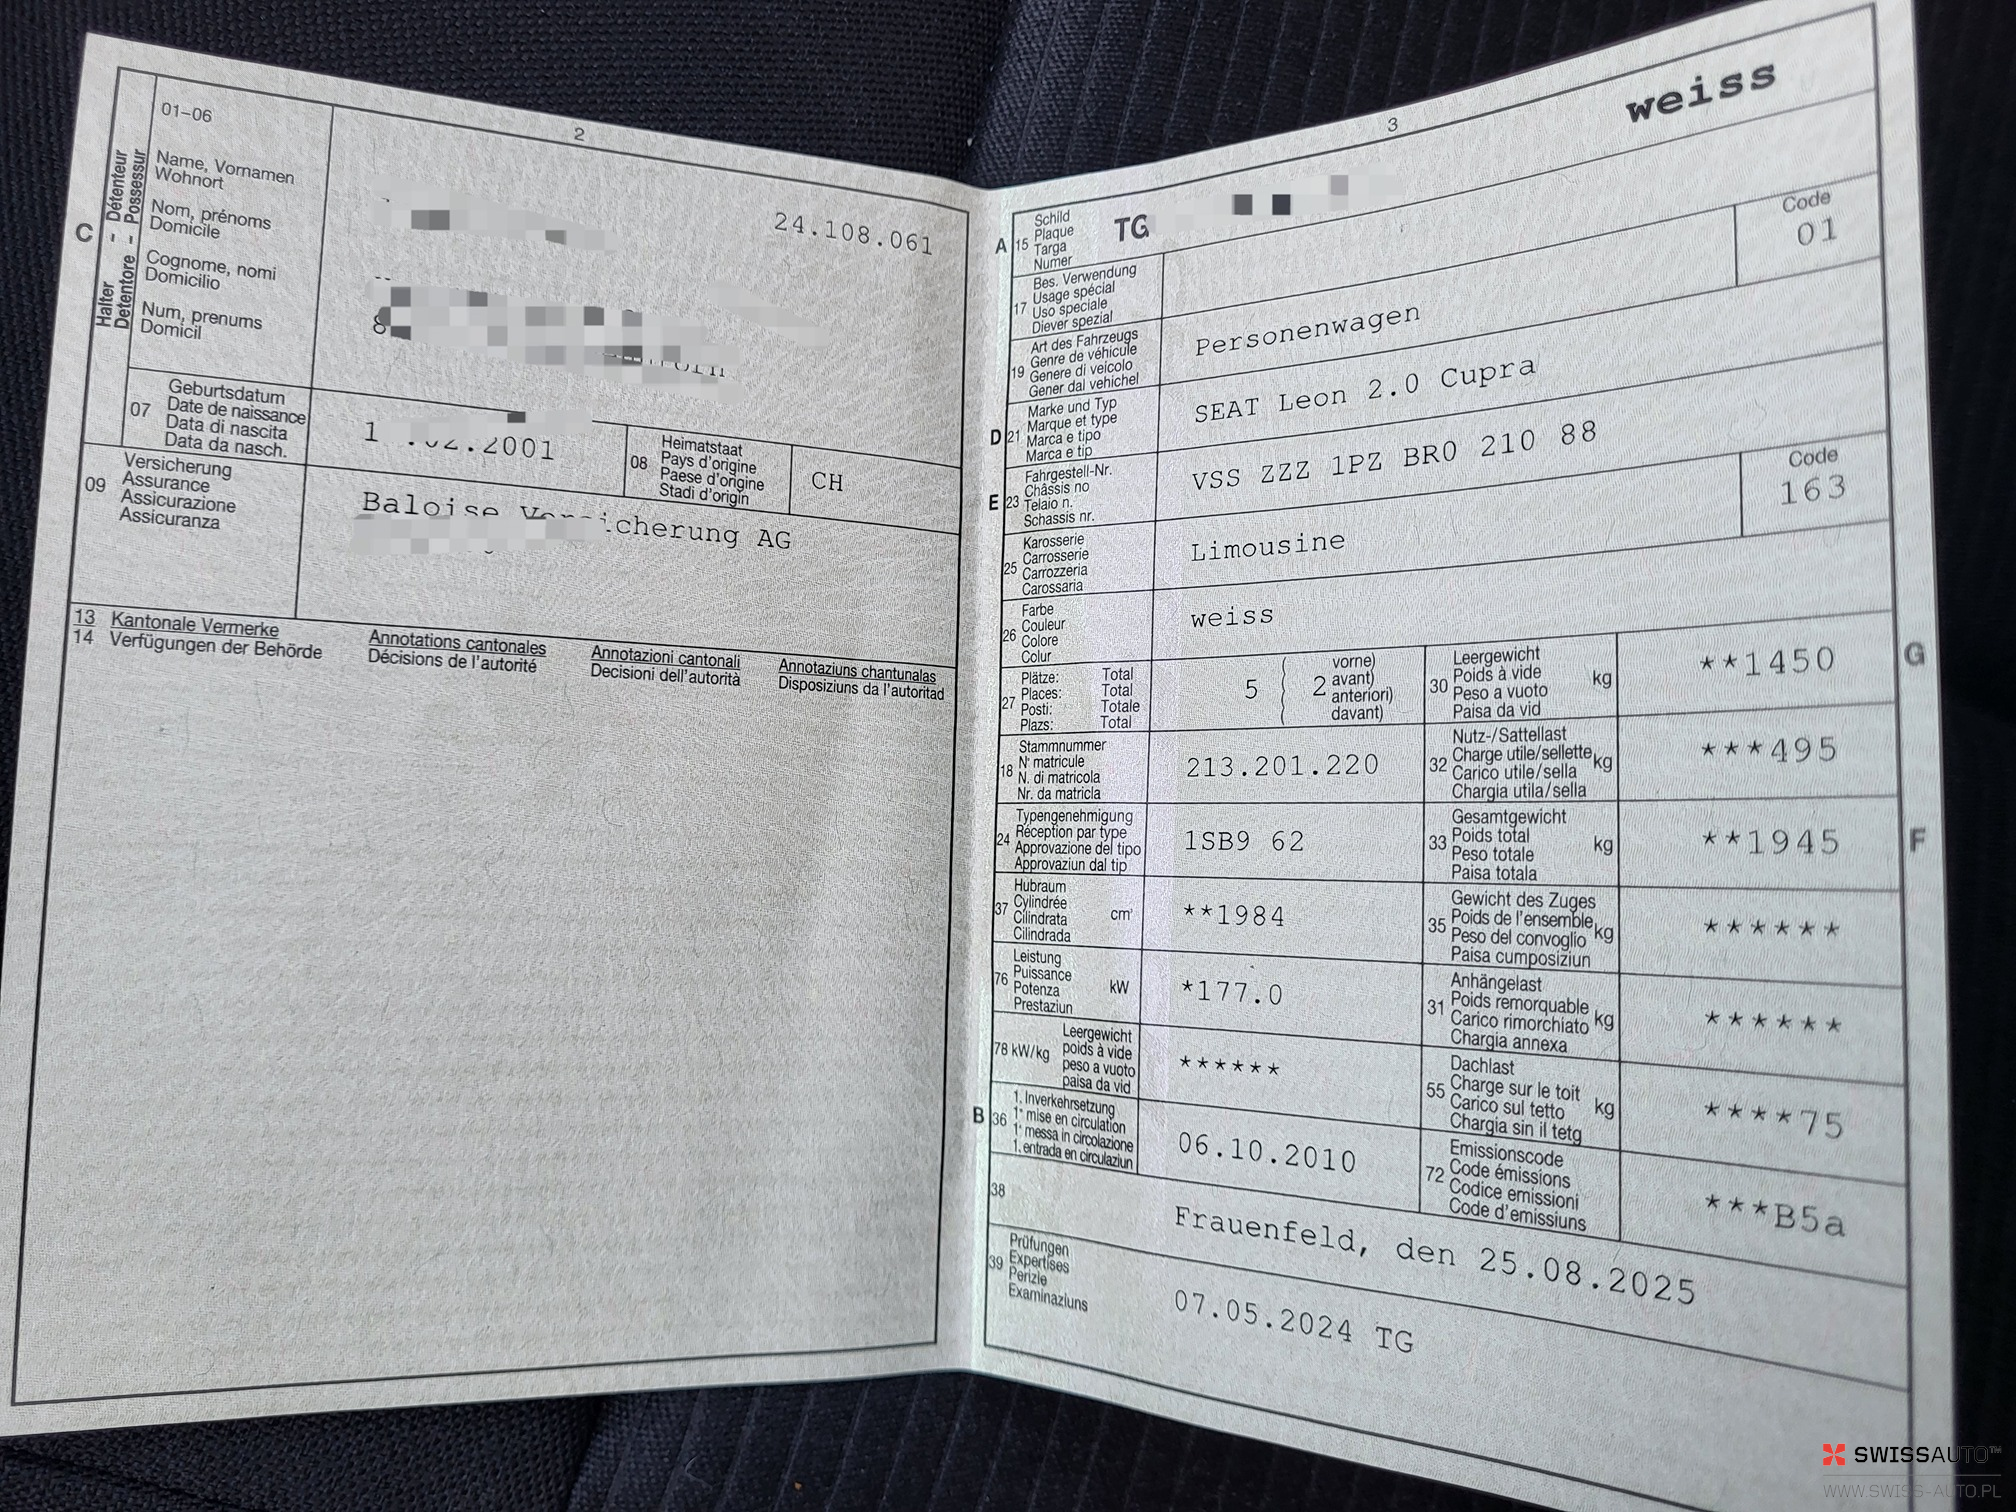 2
01–06
Name, Vornamen
Wohnort
Nom, prénoms
Domicile
Cognome, nomi
Domicilio
Num, prenums
Domicil
C
Halter - Détenteur
Detentore - Possessur
24.108.061
07
Geburtsdatum
Date de naissance
Data di nascita
Data da nasch.
1 .02.2001
08
Heimatstaat
Pays d'origine
Paese d'origine
Stadi d'origin
CH
09
Versicherung
Assurance
Assicurazione
Assicuranza
Baloise Versicherung AG
13 Kantonale Vermerke
14 Verfügungen der Behörde
Annotations cantonales
Décisions de l'autorité
Annotazioni cantonali
Decisioni dell'autorità
Annotaziuns chantunalas
Disposiziuns da l'autoritad
3
weiss
A
15
Schild
Plaque
Targa
Numer
TG
Code
01
17
Bes. Verwendung
Usage spécial
Uso speciale
Diever spezial
19
Art des Fahrzeugs
Genre de véhicule
Genere di veicolo
Gener dal vehichel
Personenwagen
D
21
Marke und Typ
Marque et type
Marca e tipo
Marca e tip
SEAT Leon 2.0 Cupra
E
23
Fahrgestell-Nr.
Châssis no
Telaio n.
Schassis nr.
VSS ZZZ 1PZ BR0 210 88
25
Karosserie
Carrosserie
Carrozzeria
Carossaria
Limousine
Code
163
26
Farbe
Couleur
Colore
Colur
weiss
27
Plätze: Total
Places: Total
Posti: Totale
Plazs: Total
5
2
vorne)
avant)
anteriori)
davant)
30
Leergewicht
Poids à vide
Peso a vuoto
Paisa da vid
kg
**1450
G
18
Stammnummer
N° matricule
N. di matricola
Nr. da matricla
213.201.220
32
Nutz-/Sattellast
Charge utile/sellette
Carico utile/sella
Chargia utila/sella
kg
***495
24
Typengenehmigung
Réception par type
Approvazione del tipo
Approvaziun dal tip
1SB9 62
33
Gesamtgewicht
Poids total
Peso totale
Paisa totala
kg
**1945
F
37
Hubraum
Cylindrée
Cilindrata
Cilindrada
cm³
**1984
35
Gewicht des Zuges
Poids de l'ensemble
Peso del convoglio
Paisa cumposiziun
kg
******
76
Leistung
Puissance
Potenza
Prestaziun
kW
*177.0
31
Anhängelast
Poids remorquable
Carico rimorchiato
Chargia annexa
kg
******
78 kW/kg
Leergewicht
poids à vide
peso a vuoto
paisa da vid
******
55
Dachlast
Charge sur le toit
Carico sul tetto
Chargia sin il tetg
kg
****75
B
36
1. Inverkehrsetzung
1° mise en circulation
1° messa in circolazione
1. entrada en circulaziun
06.10.2010
72
Emissionscode
Code émissions
Codice emissioni
Code d'emissiuns
***B5a
38
Frauenfeld, den 25.08.2025
39
Prüfungen
Expertises
Perizie
Examinaziuns
07.05.2024 TG
SWISSAUTO™
WWW.SWISS-AUTO.PL